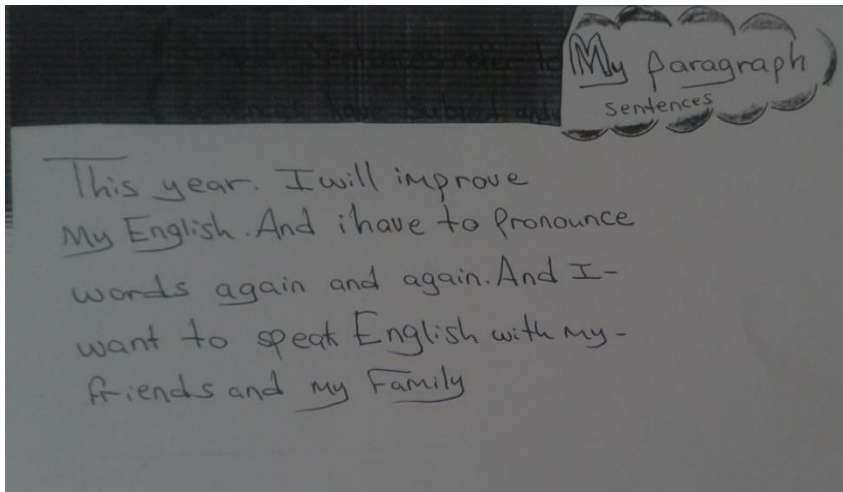 Simple Sentences refer to
sentences have Subject
My paragraph
sentences
This year. I will improve
My English. And i have to Pronounce
words again and again. And I-
want to speak English with my-
friends and my Family